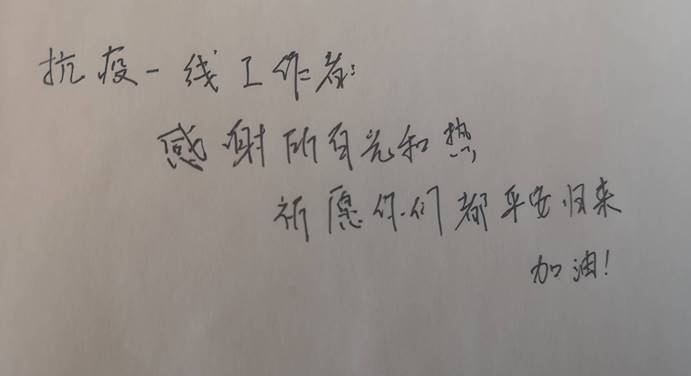 抗疫一线工作者：
感谢所有光和热，
祈愿你们都平安归来
加油！